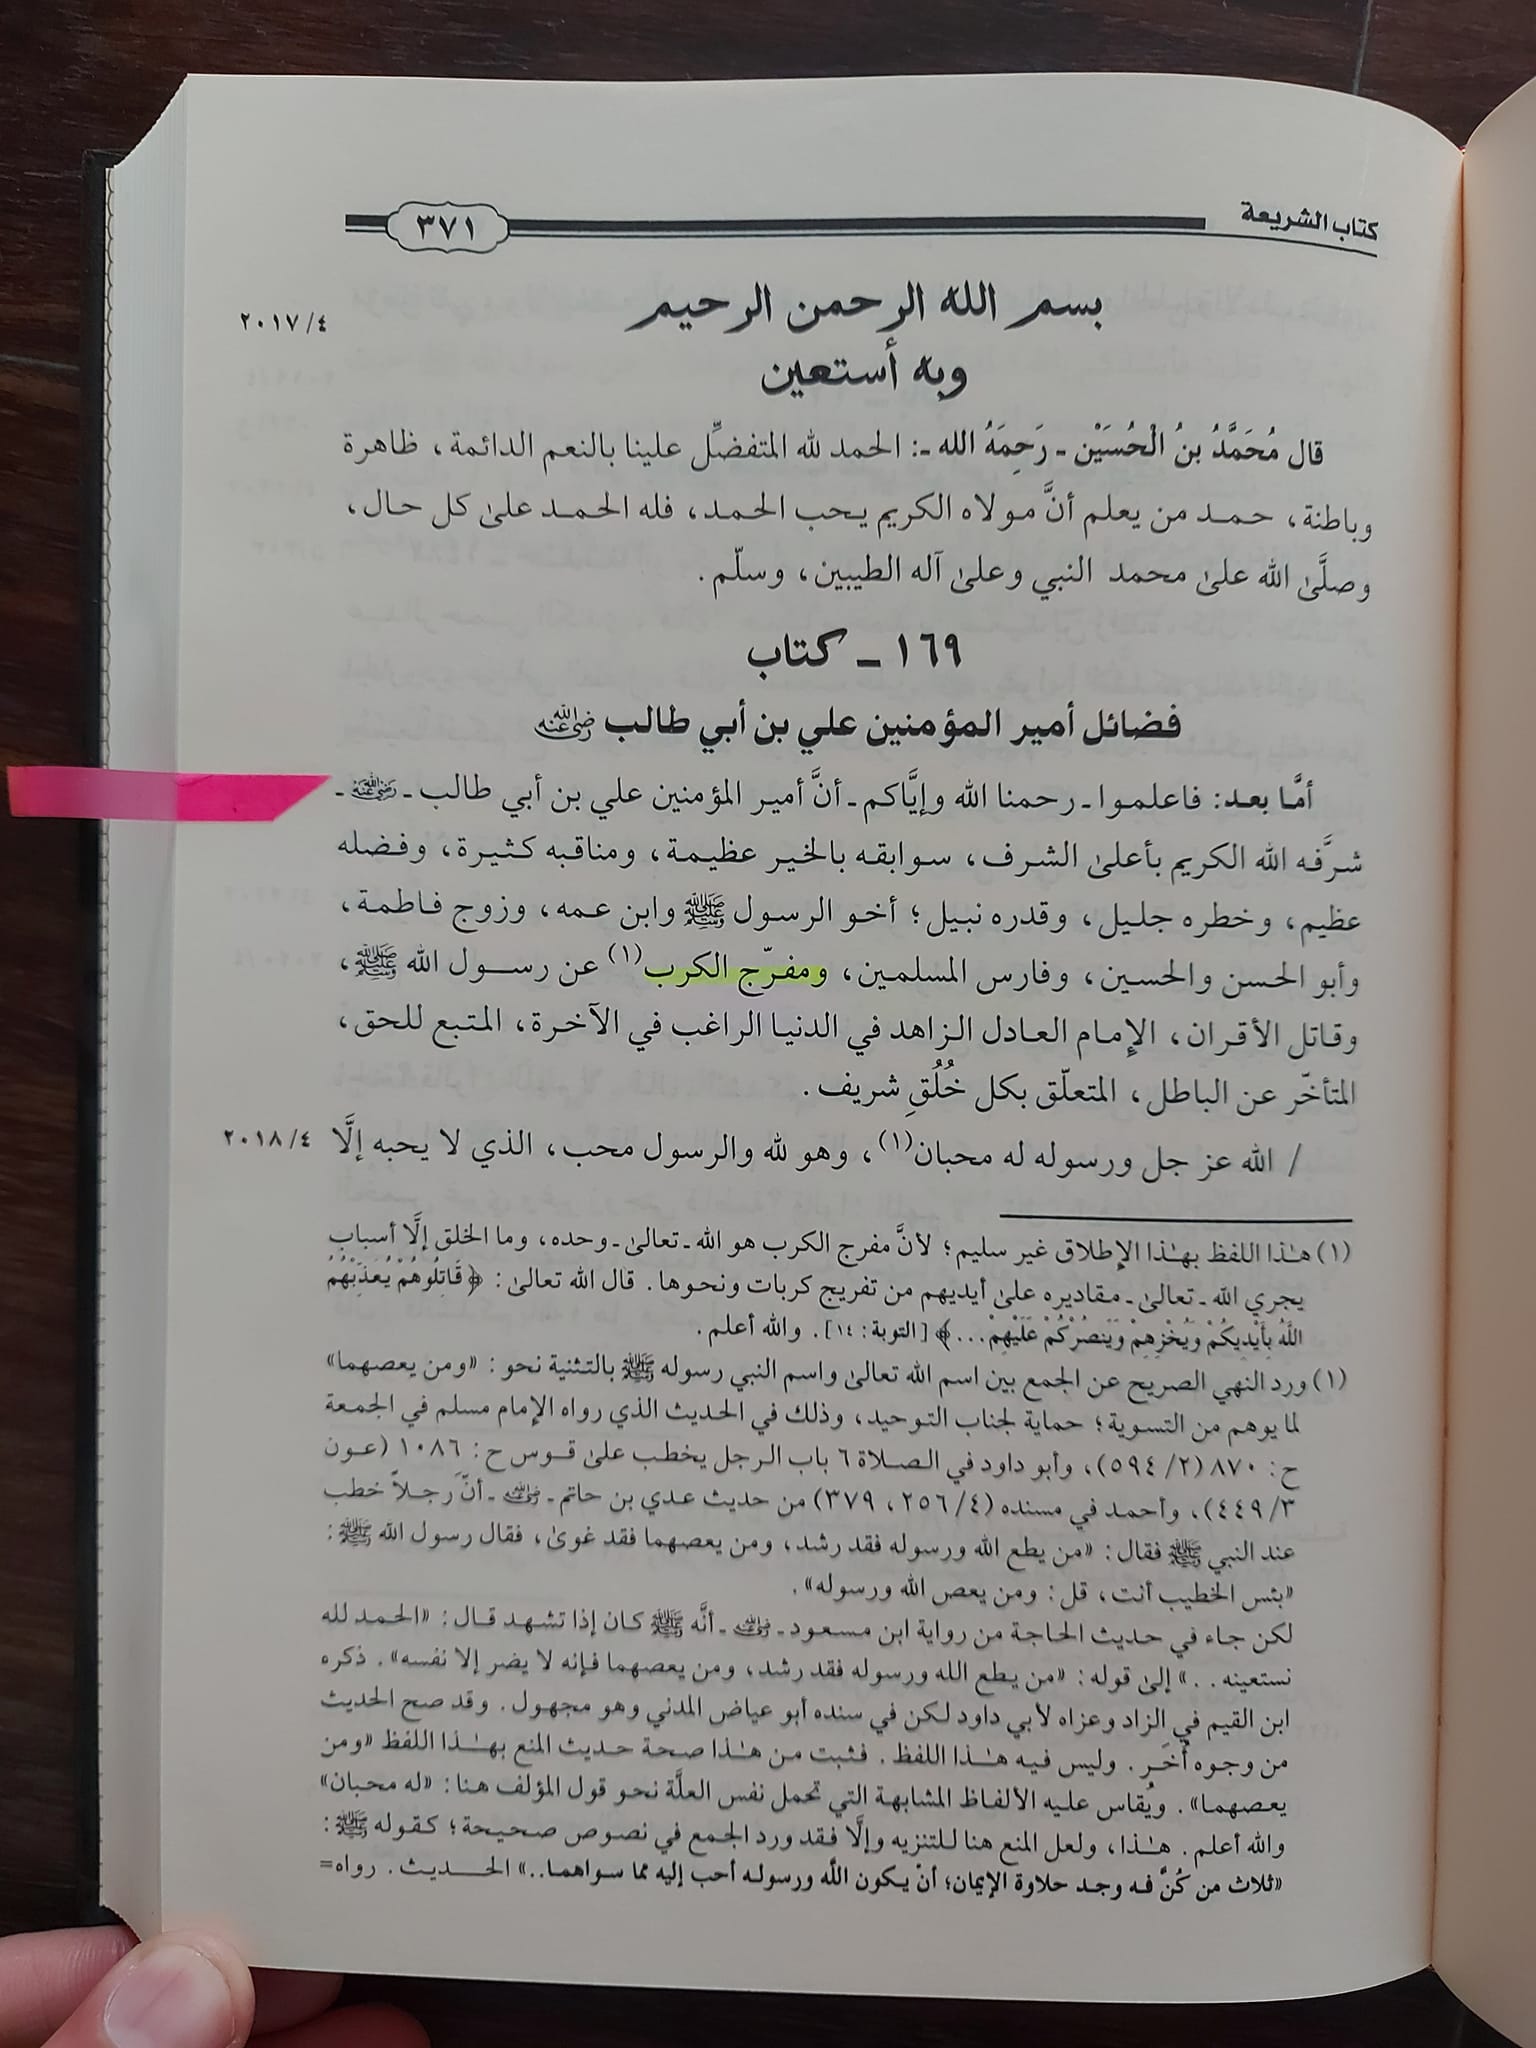 كتاب الشريعة
٣٧١
بسم الله الرحمن الرحيم
٢٠١٧/٤
وبه أستعين
قال مُحَمَّدُ بنُ الْحُسَيْن ـ رَحِمَهُ الله ـ: الحمد لله المتفضِّل علينا بالنعم الدائمة، ظاهرة
وباطنة، حمد من يعلم أنَّ مولاه الكريم يحب الحمد، فله الحمد علىٰ كل حال،
وصلَّىٰ الله علىٰ محمد النبي وعلىٰ آله الطيبين، وسلّم.
١٦٩ ـ كتاب
فضائل أمير المؤمنين علي بن أبي طالب رضي الله عنه
أمَّا بعد: فاعلموا ـ رحمنا الله وإيَّاكم ـ أنَّ أمير المؤمنين علي بن أبي طالب ـ رضي الله عنه ـ
شرَّفه الله الكريم بأعلىٰ الشرف، سوابقه بالخير عظيمة، ومناقبه كثيرة، وفضله
عظيم، وخطره جليل، وقدره نبيل؛ أخو الرسول ﷺ وابن عمه، وزوج فاطمة،
وأبو الحسن والحسين، وفارس المسلمين، ومفرّج الكرب(١) عن رسول الله ﷺ،
وقاتل الأقران، الإمام العادل الزاهد في الدنيا الراغب في الآخرة، المتبع للحق،
المتأخّر عن الباطل، المتعلّق بكل خُلُقِ شريف.
/ الله عز جل ورسوله له محبان(١)، وهو لله والرسول محب، الذي لا يحبه إلَّا ٢٠١٨/٤
(١) هـٰذا اللفظ بهـٰذا الإطلاق غير سليم؛ لأنَّ مفرج الكرب هو الله ـ تعالىٰ ـ وحده، وما الخلق إلَّا أسباب
يجري الله ـ تعالىٰ ـ مقاديره علىٰ أيديهم من تفريج كربات ونحوها. قال الله تعالىٰ: ﴿قَاتِلُوهُمْ يُعَذِّبْهُمُ
اللَّهُ بِأَيْدِيكُمْ وَيُخْزِهِمْ وَيَنصُرْكُمْ عَلَيْهِمْ...﴾ [التوبة: ١٤]. والله أعلم.
(١) ورد النهي الصريح عن الجمع بين اسم الله تعالىٰ واسم النبي رسوله ﷺ بالتثنية نحو: «ومن يعصهما»
لما يوهم من التسوية؛ حماية لجناب التوحيد، وذلك في الحديث الذي رواه الإمام مسلم في الجمعة
ح: ٨٧٠ (٥٩٤/٢)، وأبو داود في الصلاة ٦ باب الرجل يخطب علىٰ قوس ح: ١٠٨٦ (عون
٤٤٩/٣)، وأحمد في مسنده (٢٥٦/٤، ٣٧٩) من حديث عدي بن حاتم ـ رضي الله عنه ـ أنَّ رجلاً خطب
عند النبي ﷺ فقال: «من يطع الله ورسوله فقد رشد، ومن يعصهما فقد غوىٰ، فقال رسول الله ﷺ:
«بئس الخطيب أنت، قل: ومن يعص الله ورسوله».
لكن جاء في حديث الحاجة من رواية ابن مسعود ـ رضي الله عنه ـ أنَّه ﷺ كان إذا تشهد قال: «الحمد لله
نستعينه . .» إلىٰ قوله: «من يطع الله ورسوله فقد رشد، ومن يعصهما فإنه لا يضر إلا نفسه». ذكره
ابن القيم في الزاد وعزاه لأبي داود لكن في سنده أبو عياض المدني وهو مجهول. وقد صح الحديث
من وجوه أُخَر. وليس فيه هـٰذا اللفظ. فثبت من هـٰذا صحة حديث المنع بهـٰذا اللفظ «ومن
يعصهما». ويُقاس عليه الألفاظ المشابهة التي تحمل نفس العلَّة نحو قول المؤلف هنا: «له محبان»
والله أعلم. هـٰذا، ولعل المنع هنا للتنزيه وإلَّا فقد ورد الجمع في نصوص صحيحة؛ كقوله ﷺ:
«ثلاث من كُنَّ فه وجد حلاوة الإيمان؛ أنْ يكون الله ورسوله أحب إليه مما سواهما..» الحديث. رواه=